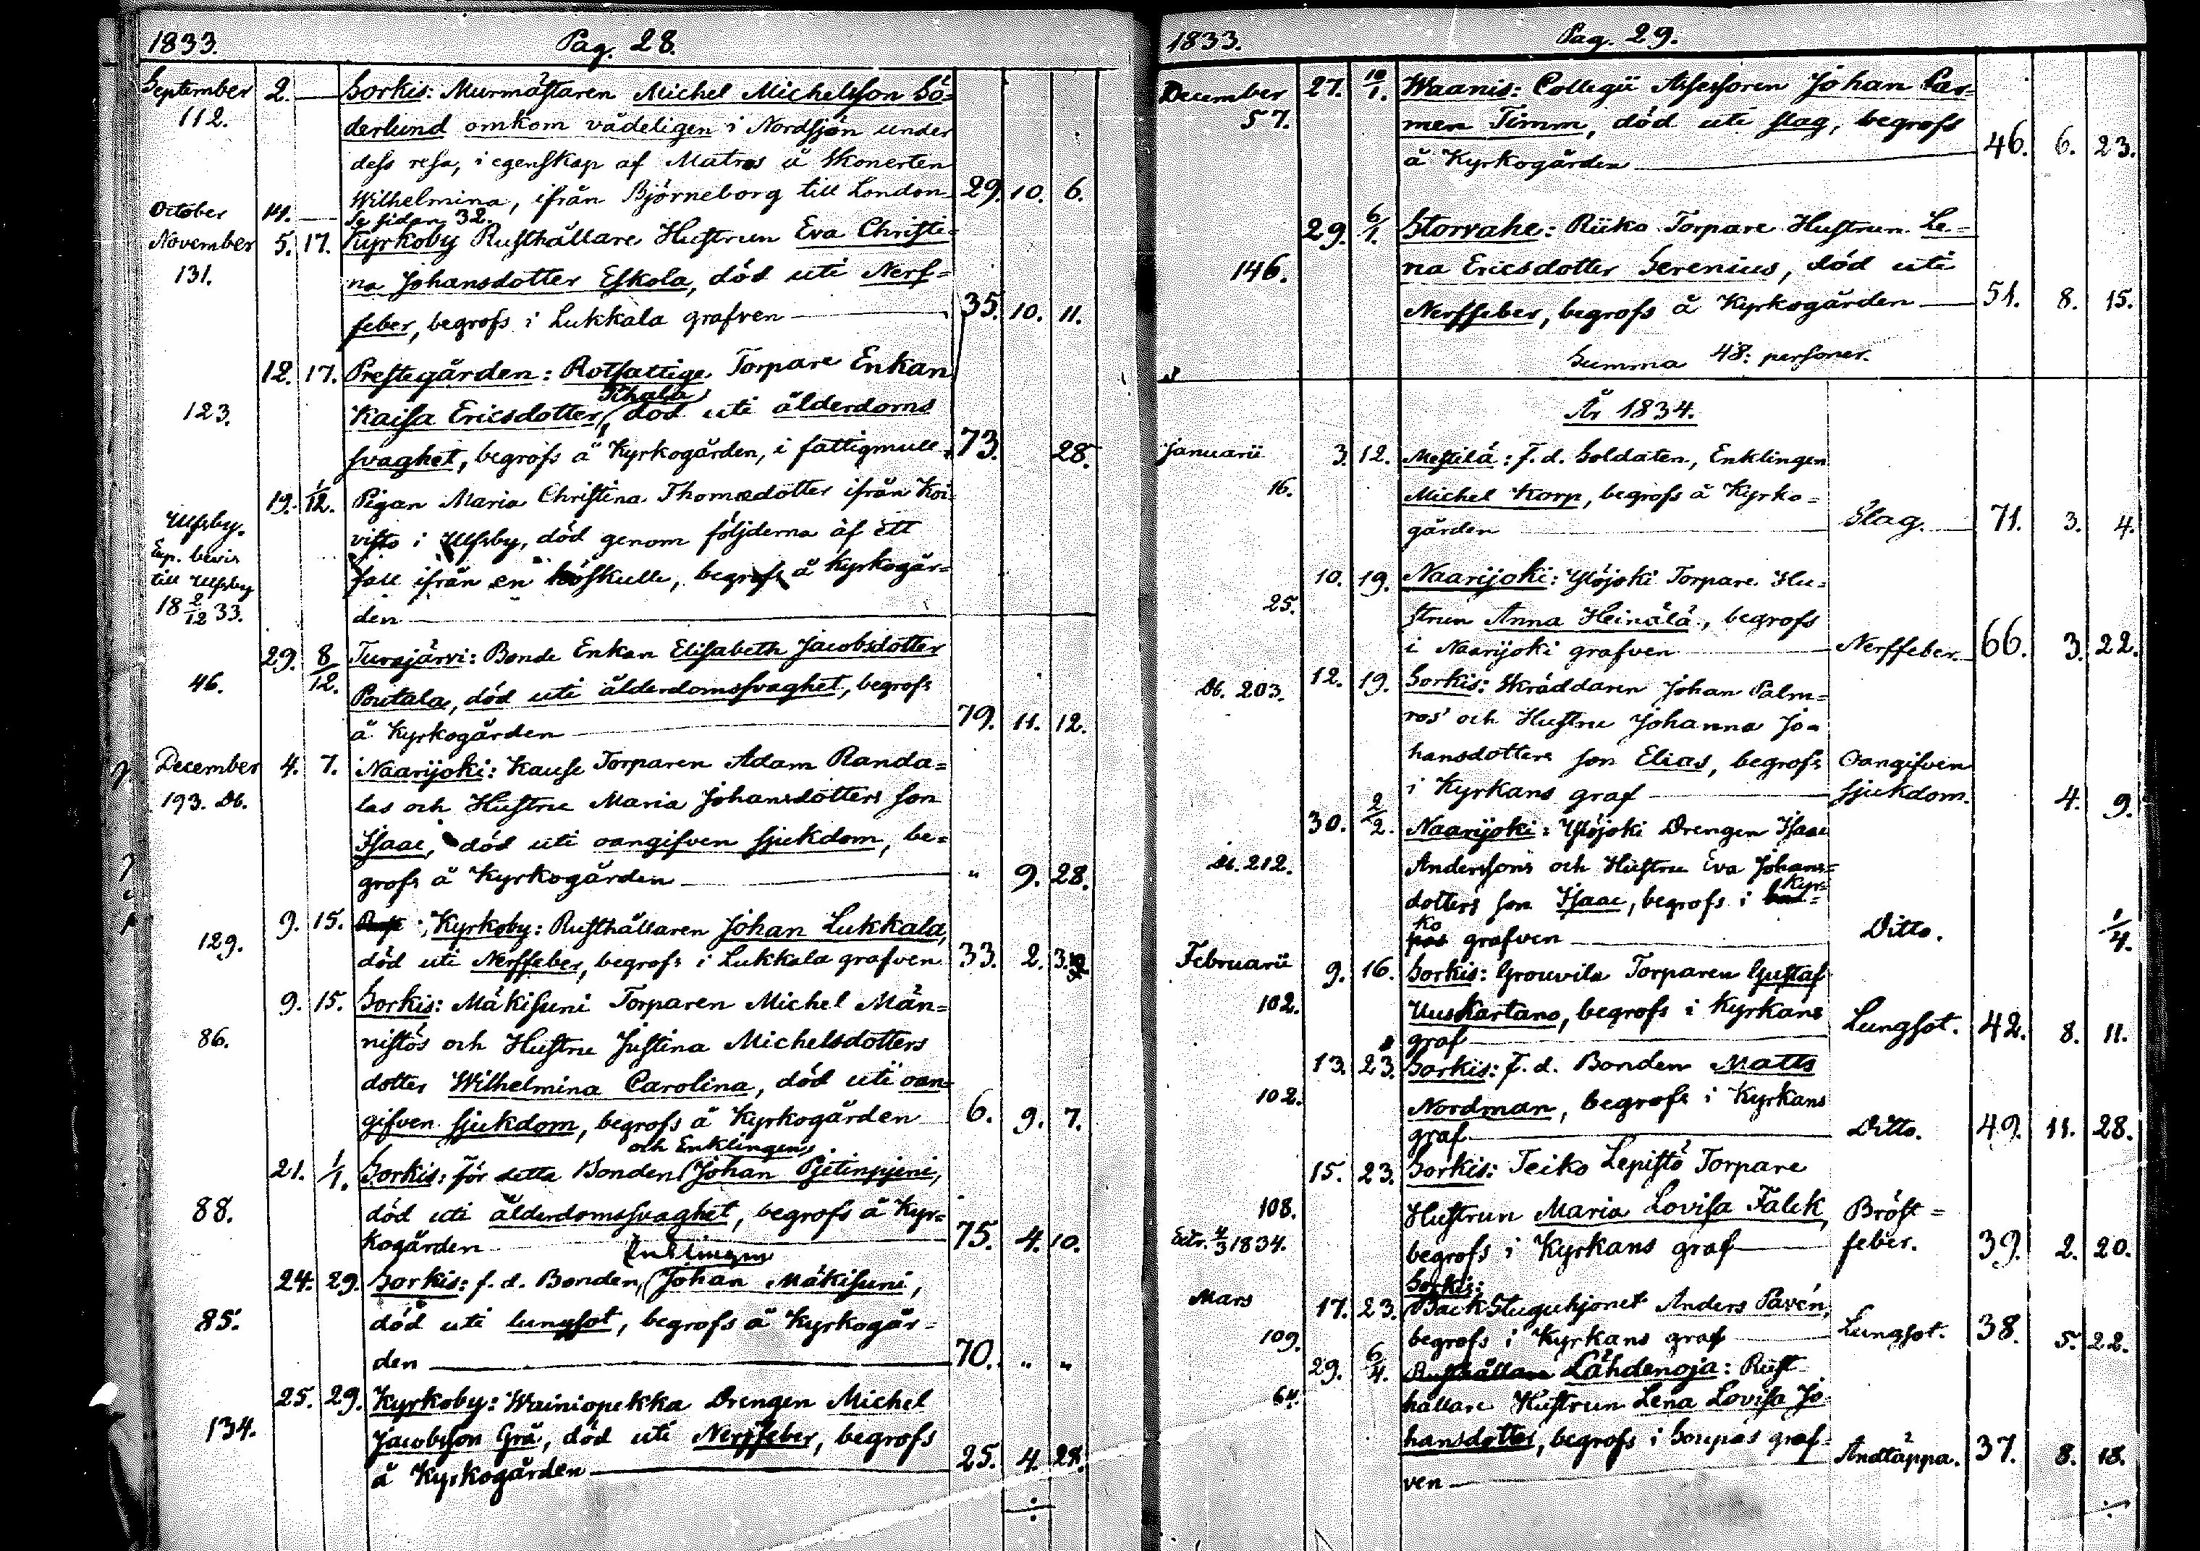 1833. Pag. 28.
September 2. Sorkis: Murmästaren Michel Michelsson Sö-
112. derlund omkom vådeligen i Nordsjön under
dess resa, i egenskap af Matros å Skonerten
Wilhelmina, ifrån Björneborg till London 29. 10. 6.
October 14. Se sidan 32.
November 5. 17. Kyrkoby Rusthållare Hustrun Eva Christi-
131. na Johansdotter Eskola, död uti Nerf-
feber, begrofs i Lukkala grafven 35. 10. 11.
12. 17. Prestegården: Rotfattige Torpare Enkan
123. Kaisa Ericsdotter, död uti ålderdoms
svaghet, begrofs å Kyrkogården, i fattigmull 73. 28.
19. 1/12. Pigan Maria Christina Thomsdotter ifrån Koi-
Ulfsby. visto i Ulfsby, död genom följderna af ett
Exp. bevis fall ifrån en höskulle, begrofs å Kyrkogår-
till Ulfsby den
18 2/12 33.
29. 8/12. Turajärvi: Bonde Enkan Elisabeth Jacobsdotter
46. Poutala, död uti ålderdomssvaghet, begrofs
å Kyrkogården 79. 11. 12.
December 4. 7. Naarijoki: Kause Torparen Adam Randa-
193. Db. las och Hustru Maria Johansdotters son
Isaac, död uti oangifven sjukdom, be-
grofs å Kyrkogården " 9. 28.
9. 15. Kyrkoby: Rusthållaren Johan Lukkala,
129. död uti Nerffeber, begrofs i Lukkala grafven 33. 2.
9. 15. Sorkis: Mäkisuni Torparen Michel Män-
86. nistös och Hustru Justina Michelsdotters
dotter Wilhelmina Carolina, död uti oan-
gifven sjukdom, begrofs å Kyrkogården 6. 9. 7.
och Enklingen
21. 1/1. Sorkis: för detta Bonden Johan Pjetinpjeni,
88. död uti ålderdomssvaghet, begrofs å Kyr-
kogården 75. 4. 10.
Enklingen
24. 29. Sorkis: f. d. Bonden, Johan Mäkisuni,
85. död uti lungsot, begrofs å Kyrkogår-
den 70. " "
25. 29. Kyrkoby: Wainiopekka Drengen Michel
134. Jacobsson Grå, död uti Nerffeber, begrofs
å Kyrkogården 25. 4. 28.
1833. Pag. 29.
December 27. 10/1. Waanis: Collegii Assessoren Johan Car-
57. men Timm, död uti slag, begrofs
å Kyrkogården 46. 6. 23.
29. 6/1. Storvahe: Riiko Torpare Hustrun Le-
146. na Ericsdotter Serenius, död uti
Nerffeber, begrofs å Kyrkogården 51. 8. 15.
Summa 48: personer.
År 1834.
Januarii 3. 12. Mestilä: f. d. Soldaten, Enklingen
16. Michel Korp, begrofs å Kyrko-
gården Slag. 71. 3. 4.
10. 19. Naarijoki: Ylöjoki Torpare Hu-
25. strun Anna Heinälä, begrofs
i Naarijoki grafven Nerffeber. 66. 3. 22.
Db. 203. 12. 19. Sorkis: Skräddaren Johan Palm-
ros' och Hustru Johanna Jo-
hansdotters son Elias, begrofs Oangifven
i Kyrkans graf sjukdom. 4. 9.
30. 2/2. Naarijoki: Ylöjoki Drengen Isaac
Db. 212. Anderssons och Hustru Eva Johans-
dotters son Isaac, begrofs i Kyr-
ko grafven Ditto. 1/4.
Februarii 9. 16. Sorkis: Grouvila Torparen Gustaf
102. Uuskartano, begrofs i Kyrkans
graf Lungsot. 42. 8. 11.
13. 23. Sorkis: f. d. Bonden Matts
102. Nordman, begrofs i Kyrkans
graf Ditto. 49. 11. 28.
15. 23. Sorkis: Teiko Lepistö Torpare
108. Hustrun Maria Lovisa Falck, Bröst-
Extr. 4/3 1834. begrofs i Kyrkans graf feber. 39. 2. 20.
Sorkis:
Mars 17. 23. BackStuguhjonet Anders Pavén,
109. begrofs i Kyrkans graf Lungsot. 38. 5. 22.
29. 6/4. Lähdenoja: Rust-
64. hållare Hustrun Lena Lovisa Jo-
hansdotter, begrofs i Soupas graf-
ven Andtäppa. 37. 8. 18.